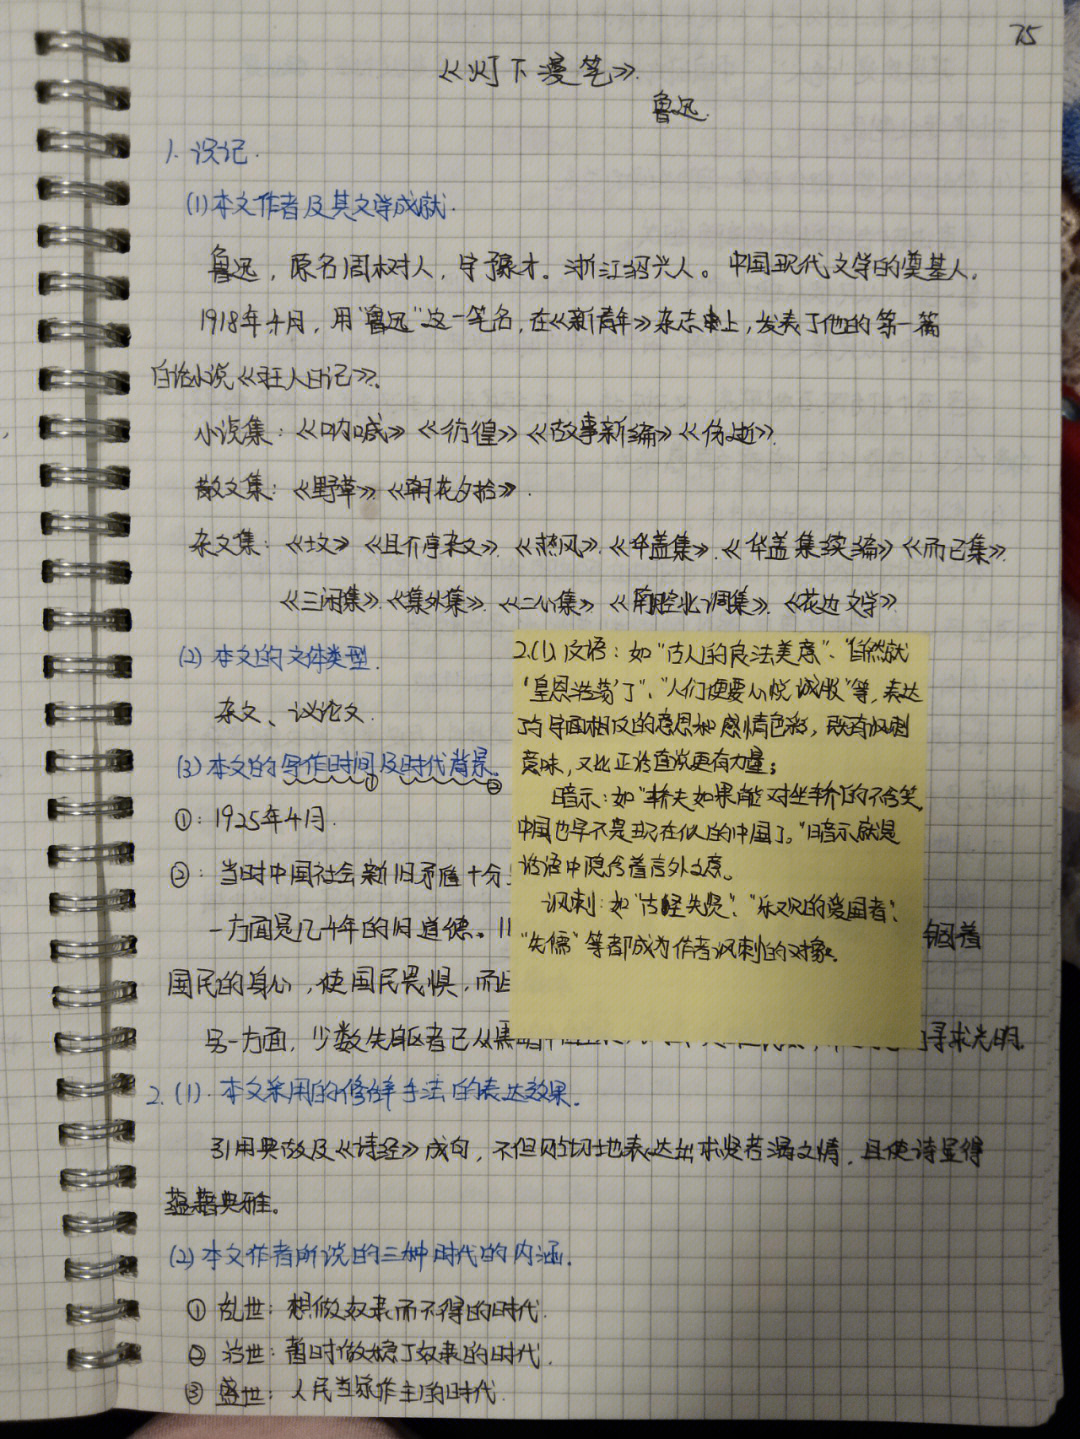 75
《灯下漫笔》
鲁迅.
1. 识记.
(1)本文作者及其文学成就.
鲁迅，原名周树人，字豫才。浙江绍兴人。中国现代文学的奠基人.
1918年4月，用"鲁迅"这一笔名，在《新青年》杂志上，发表了他的第一篇
白话小说《狂人日记》.
小说集：《呐喊》《彷徨》《故事新编》《伤逝》.
散文集：《野草》《朝花夕拾》.
杂文集：《坟》《且介亭杂文》.《热风》.《华盖集》.《华盖集续编》《而已集》.
《三闲集》.《集外集》.《二心集》《南腔北调集》.《花边文学》
(2) 本文的文体类型.
杂文、议论文.
(3) 本文的写作时间及时代背景.
① ②
①：1925年4月.
②：当时中国社会新旧矛盾十分
一方面是几千年的旧道德。
锢着
国民的身心，使国民畏惧，而且
另一方面，少数先驱者已从黑暗中
寻求光明.
2.(1)、反语：如"古人的良法美意"、"自然就
'皇恩浩荡'了"、"人们便要心悦诚服"等，表达
了与字面相反的意思和感情色彩，既有讽刺
意味，又比正话直说更有力量；
暗示：如"轿夫如果能对坐轿的不含笑，
中国也早不是现在似的中国了。"暗示就是
话语中隐含着言外之意。
讽刺：如"古经先贤"、"乐观的爱国者"、
"先儒"等都成为作者讽刺的对象。
2.(1). 本文采用的修辞手法的表达效果.
引用典故及《诗经》成句，不但贴切地表达出求贤若渴之情，且使诗显得
蕴藉典雅。
(2)本文作者所说的三种时代的内涵.
① 乱世：想做奴隶而不得的时代.
② 治世：暂时做稳了奴隶的时代.
③ 盛世：人民当家作主的时代.